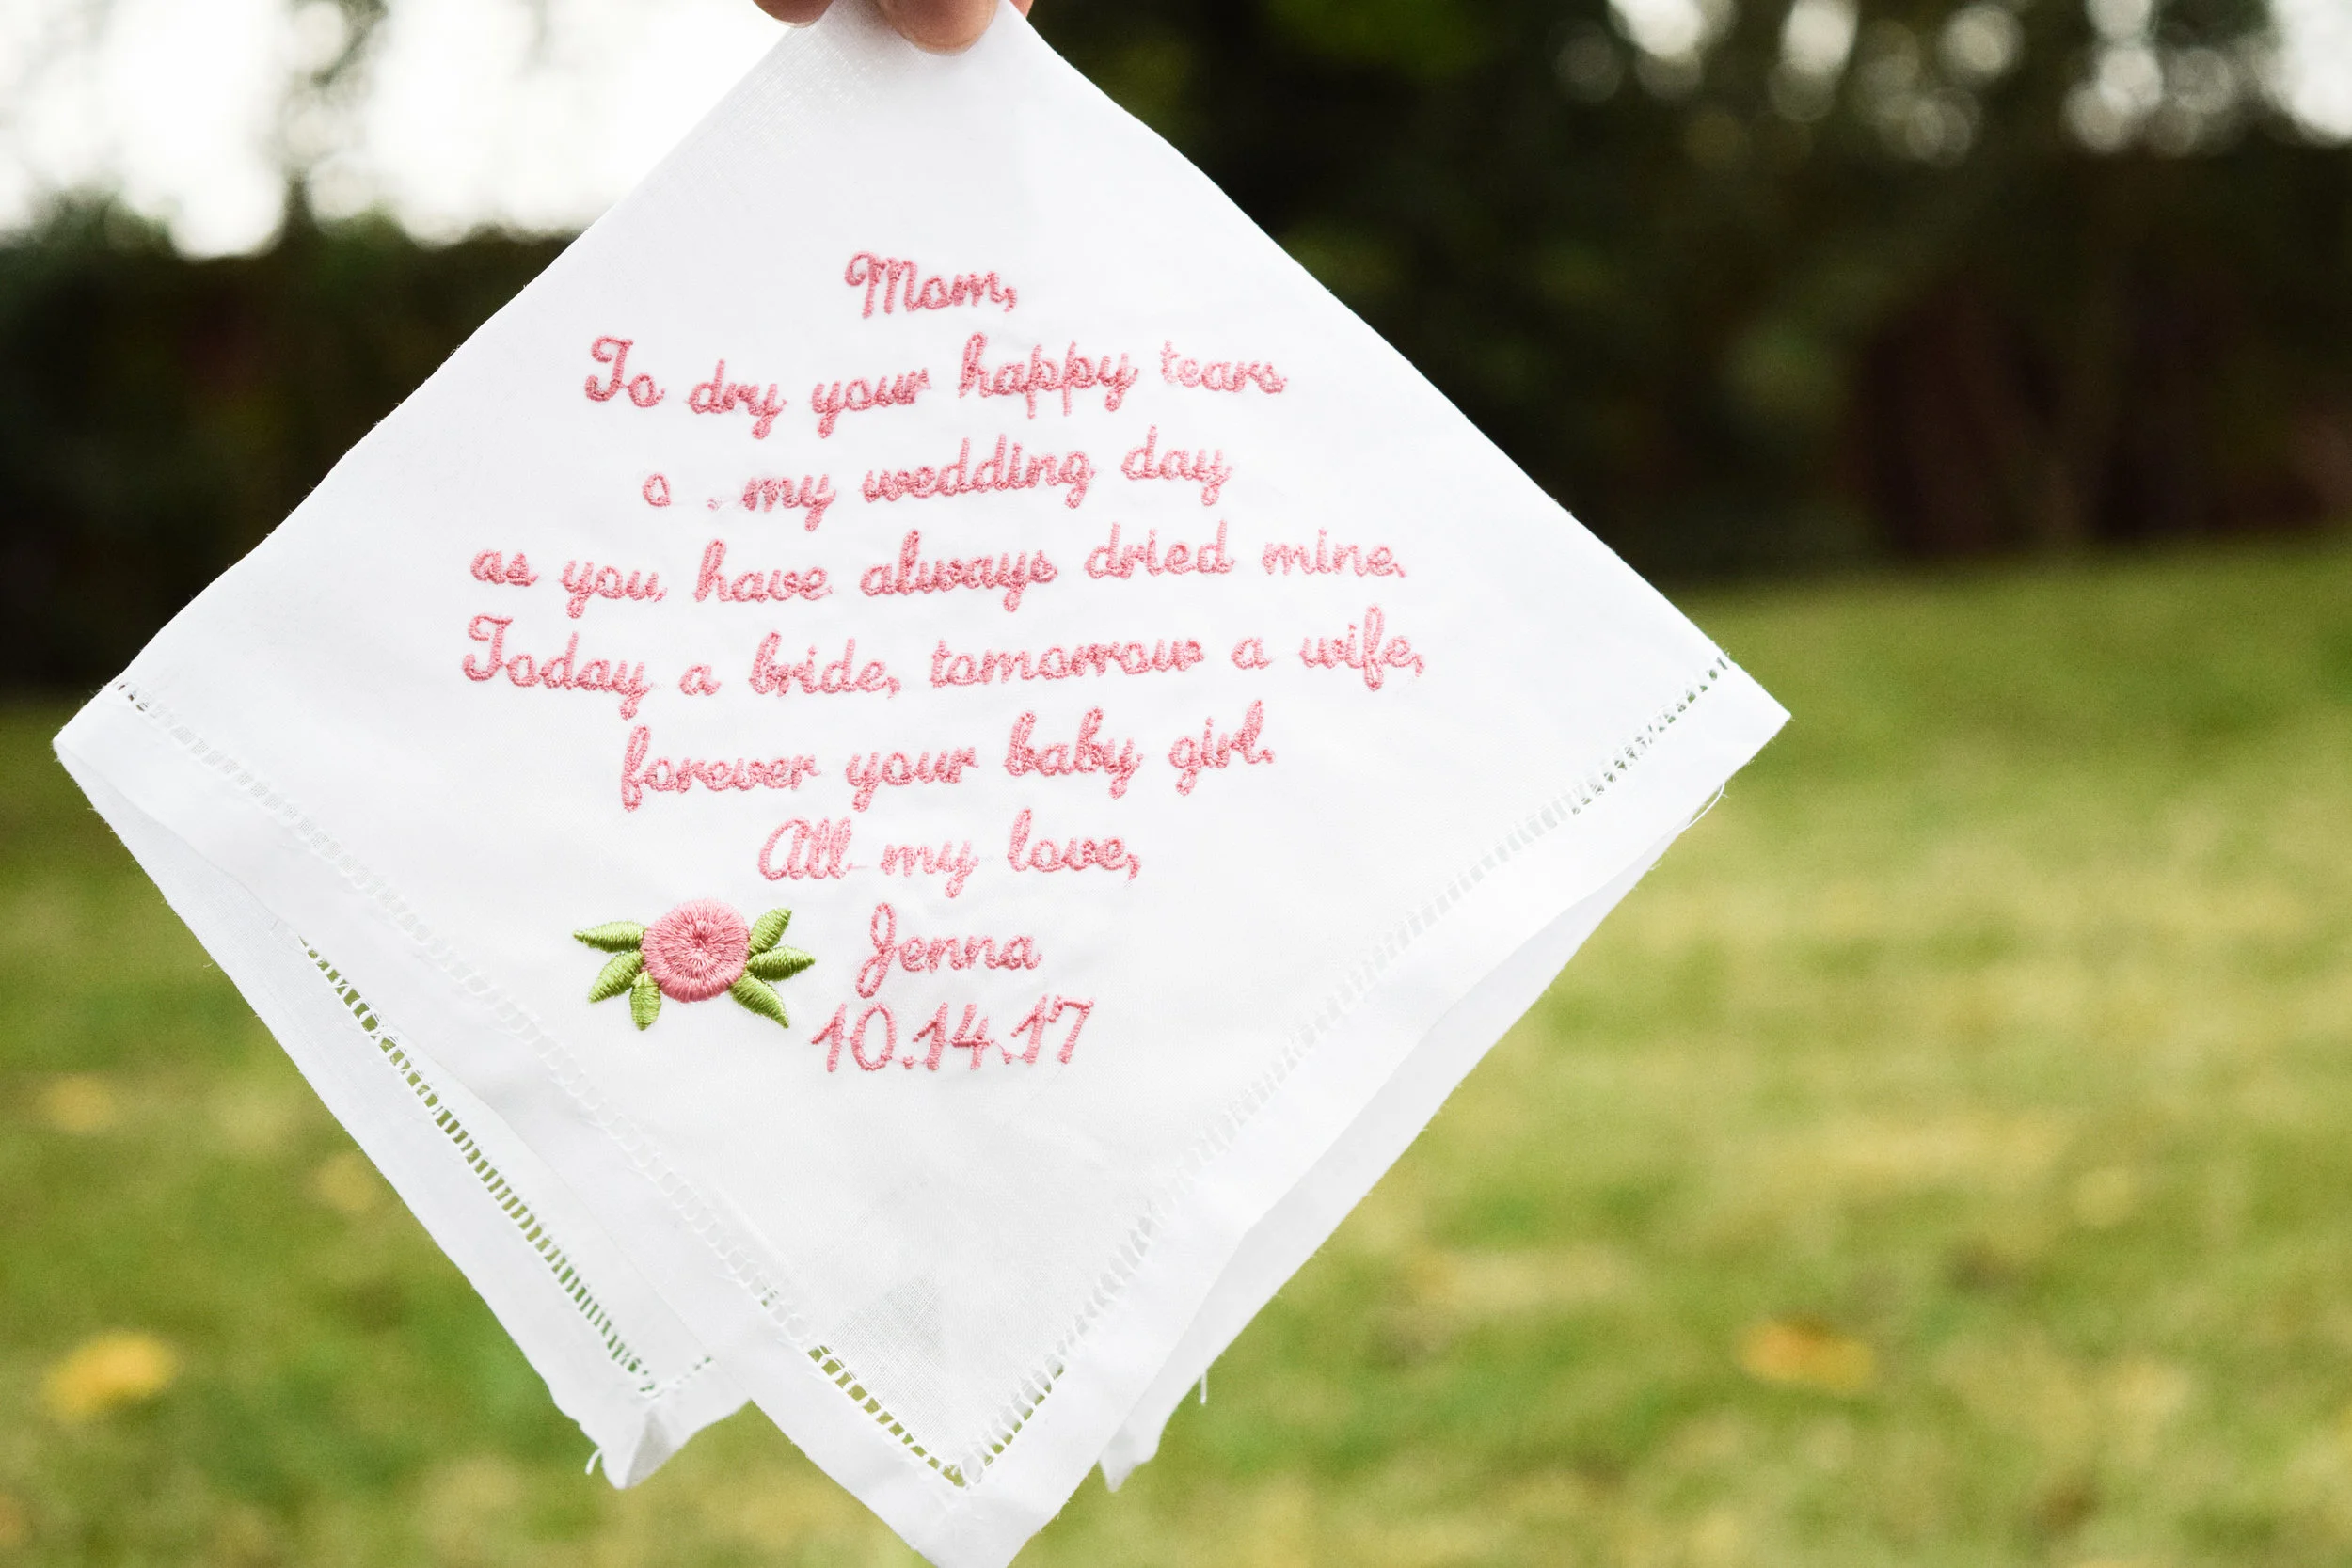 Mom,
To dry your happy tears
o my wedding day
as you, have always dried mine.
Today a bride, tomorrow a wife,
forever your baby girl.
All my love,
Jenna
10.14.17